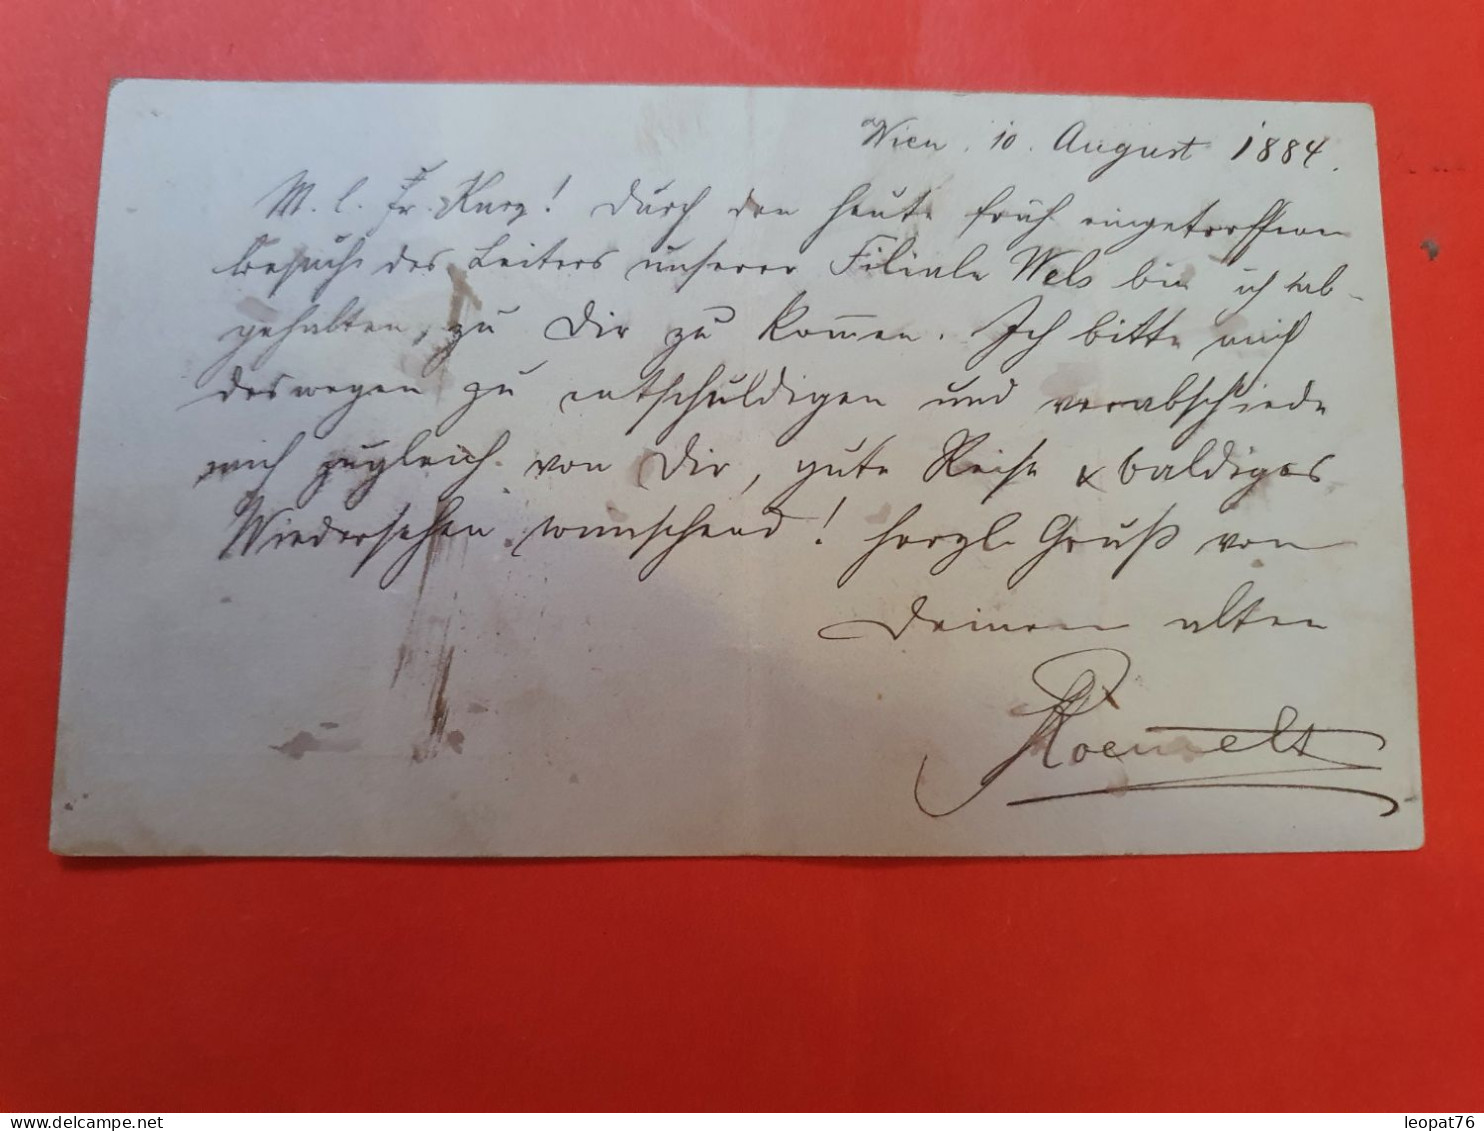 Wien, 10. August 1884.
M. l. Fr. Kurz! Durch den heute früh eingetroffenen
Besuch des Leiters unserer Filiale Wels bin ich ab-
gehalten, zu Dir zu kommen. Ich bitte mich
deswegen zu entschuldigen und verabschiede
mich zugleich von Dir, gute Reise & baldiges
Wiedersehen wünschend! Herzl. Gruß von
Deinem alten
leopat76